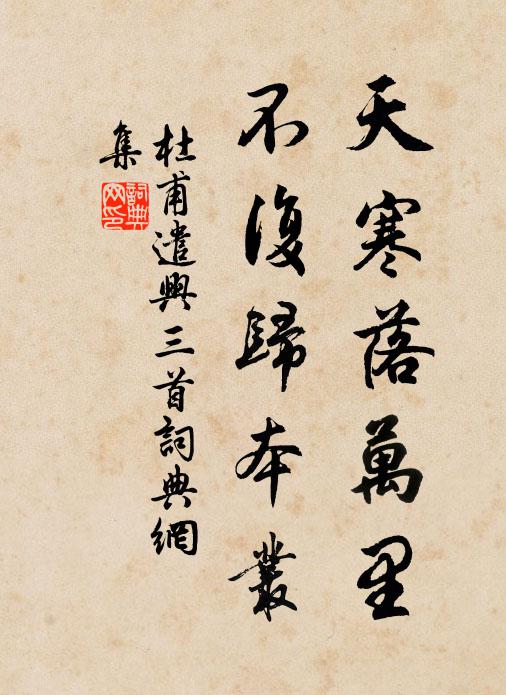 天寒落萬里
不復歸本叢
杜甫遣興三首詞典網
集
詞典
网印